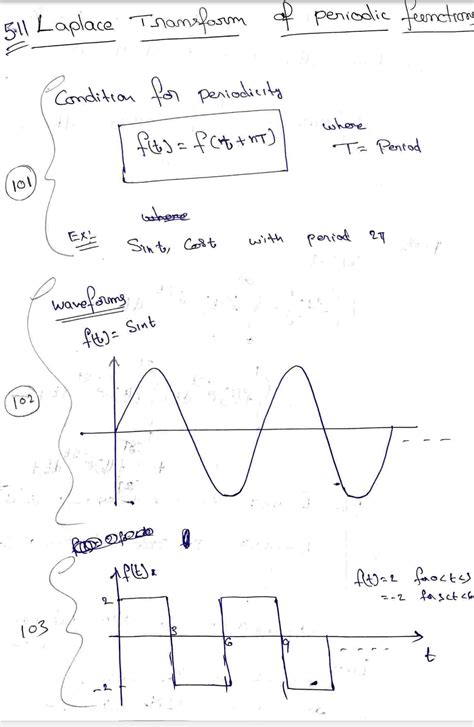 5.11 Laplace Transform of periodic functions
Condition for periodicity
f(t) = f(t + nT)
where
T = Period
101
where
Ex:- Sint, Cost with period 2π
waveforms
f(t) = Sint
102
f(t)
f(t) = 2 for 0<t<3
= -2 for 3<t<6
2
103
3 6 9
t
-2